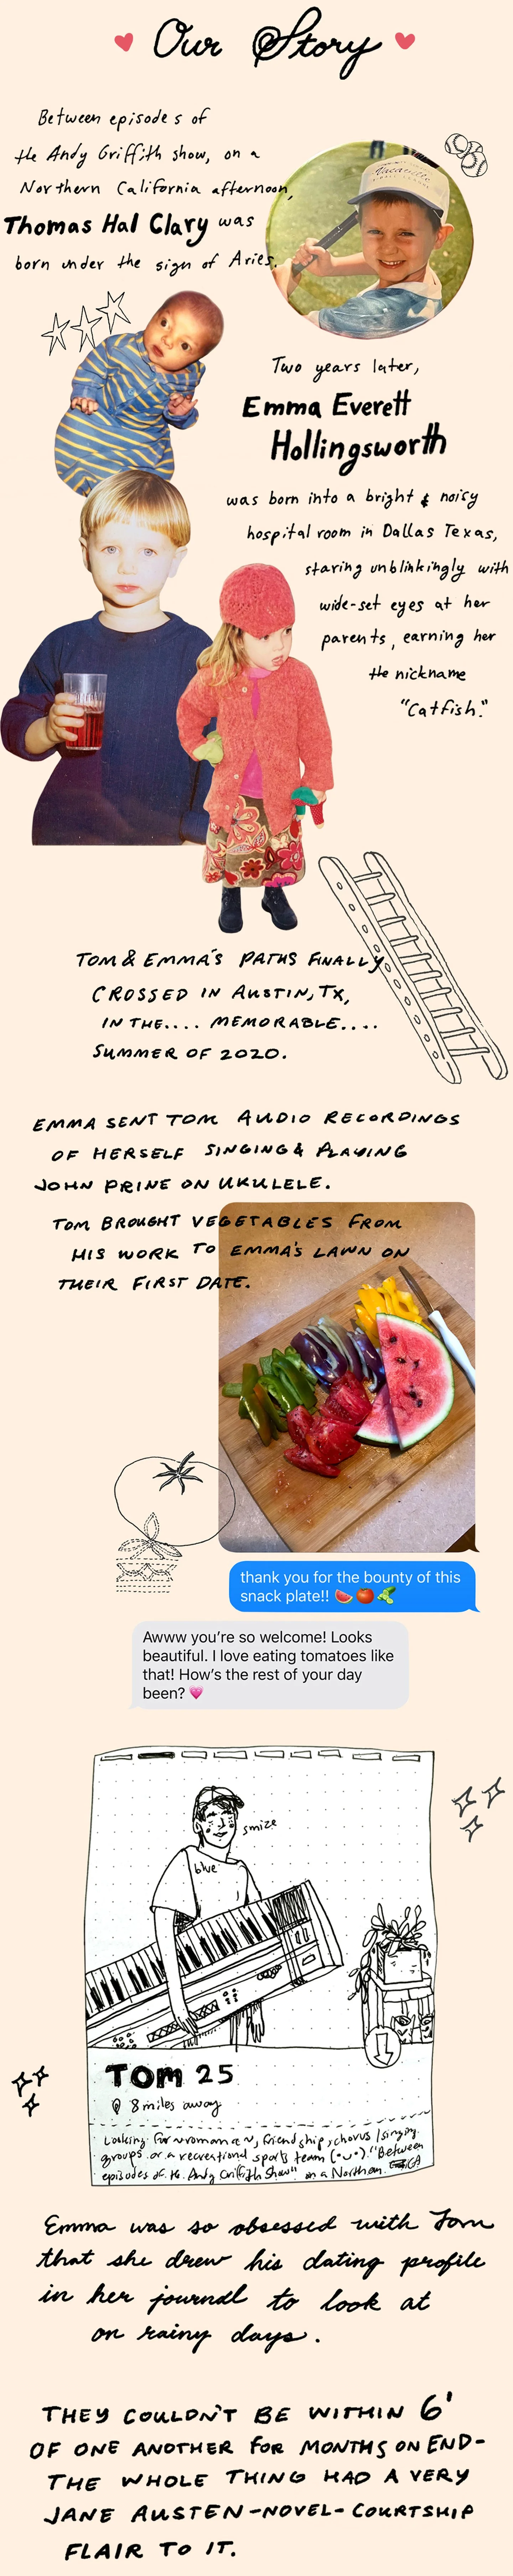 Our Story
Between episodes of
the Andy Griffith show, on a
Northern California afternoon,
Thomas Hal Clary was
born under the sign of Aries.
Vacaville
Two years later,
Emma Everett
Hollingsworth
was born into a bright & noisy
hospital room in Dallas Texas,
staring unblinkingly with
wide-set eyes at her
parents, earning her
the nickname
"Catfish."
TOM & EMMA'S PATHS FINALLY
CROSSED IN AUSTIN, TX,
IN THE.... MEMORABLE....
SUMMER OF 2020.
EMMA SENT TOM AUDIO RECORDINGS
OF HERSELF SINGING & PLAYING
JOHN PRINE ON UKULELE.
TOM BROUGHT VEGETABLES FROM
HIS WORK TO EMMA'S LAWN ON
THEIR FIRST DATE.
thank you for the bounty of this
snack plate!! 🍉🍅🥒
Awww you're so welcome! Looks
beautiful. I love eating tomatoes like
that! How's the rest of your day
been? 💗
smize
blue
TOM 25
8 miles away
Looking for ~romance~, friendship, chorus/singing
groups or a recreational sports team (•◡•). "Between
episodes of the Andy Griffith Show" on a Northern CA
Emma was so obsessed with Tom
that she drew his dating profile
in her journal to look at
on rainy days.
THEY COULDN'T BE WITHIN 6'
OF ONE ANOTHER FOR MONTHS ON END-
THE WHOLE THING HAD A VERY
JANE AUSTEN-NOVEL-COURTSHIP
FLAIR TO IT.